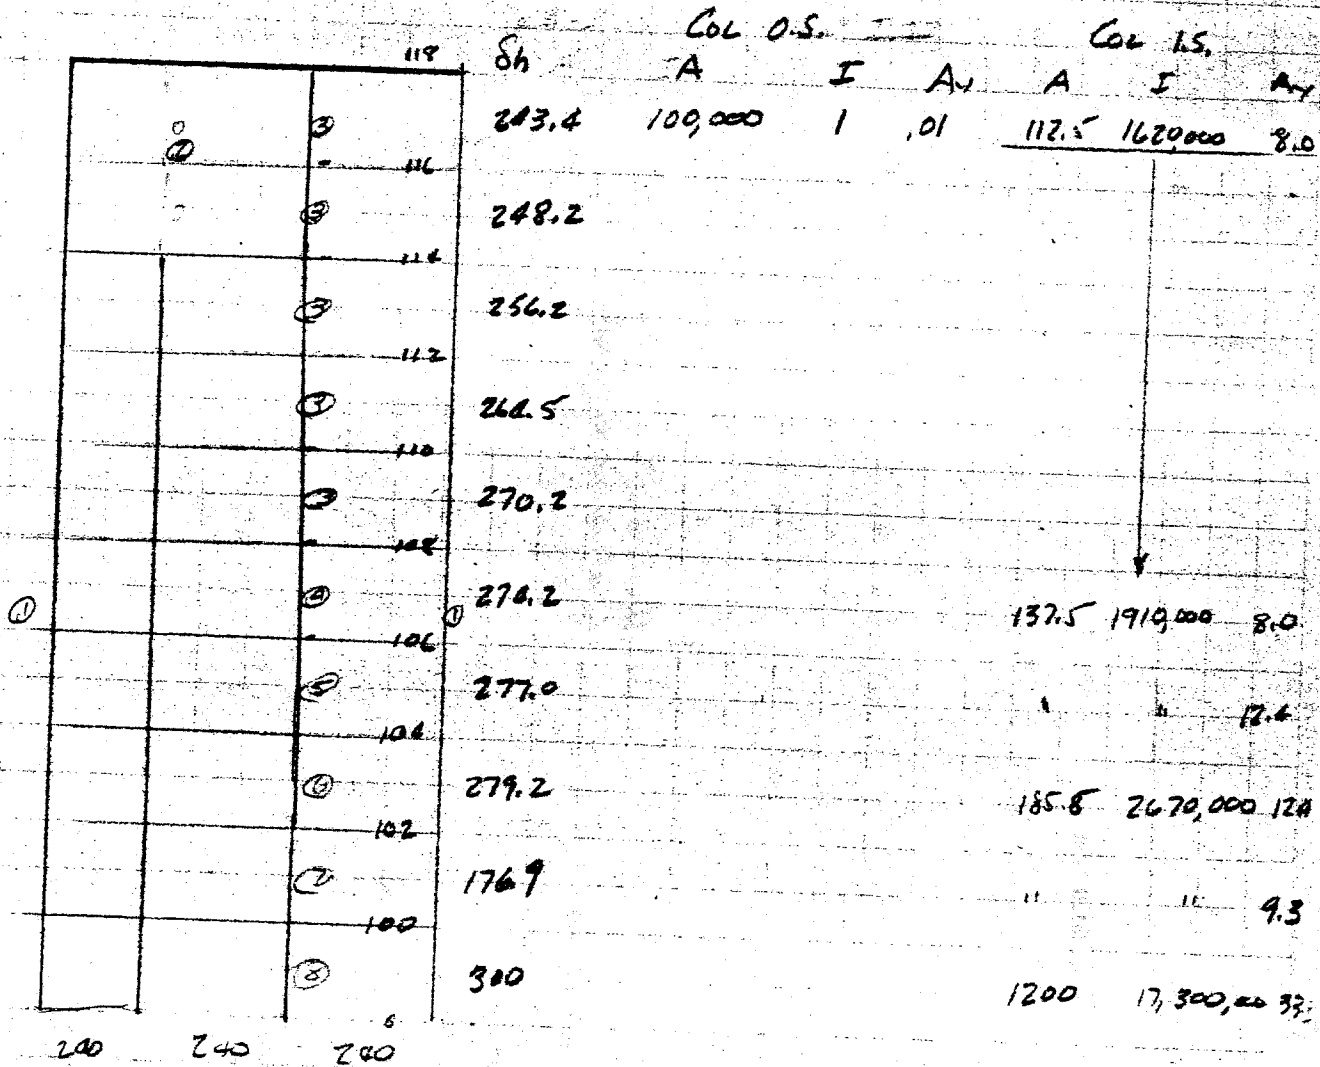 Col O.S. Col I.S.
118 δh A I Av A I Av
③ 243.4 100,000 1 .01 112.5 1620,000 8.0
②
116
③ 248.2
114
③ 256.2
112
③ 264.5
110
③ 270.2
108
① ④ ① 274.2 137.5 1910,000 8.0
106
⑤ 277.0 " " 12.4
104
⑥ 279.2 185.8 2670,000 12.4
102
⑦ 176.9 " " 9.3
100
⑧ 300 1200 17,300,000 33
6
240 240 240